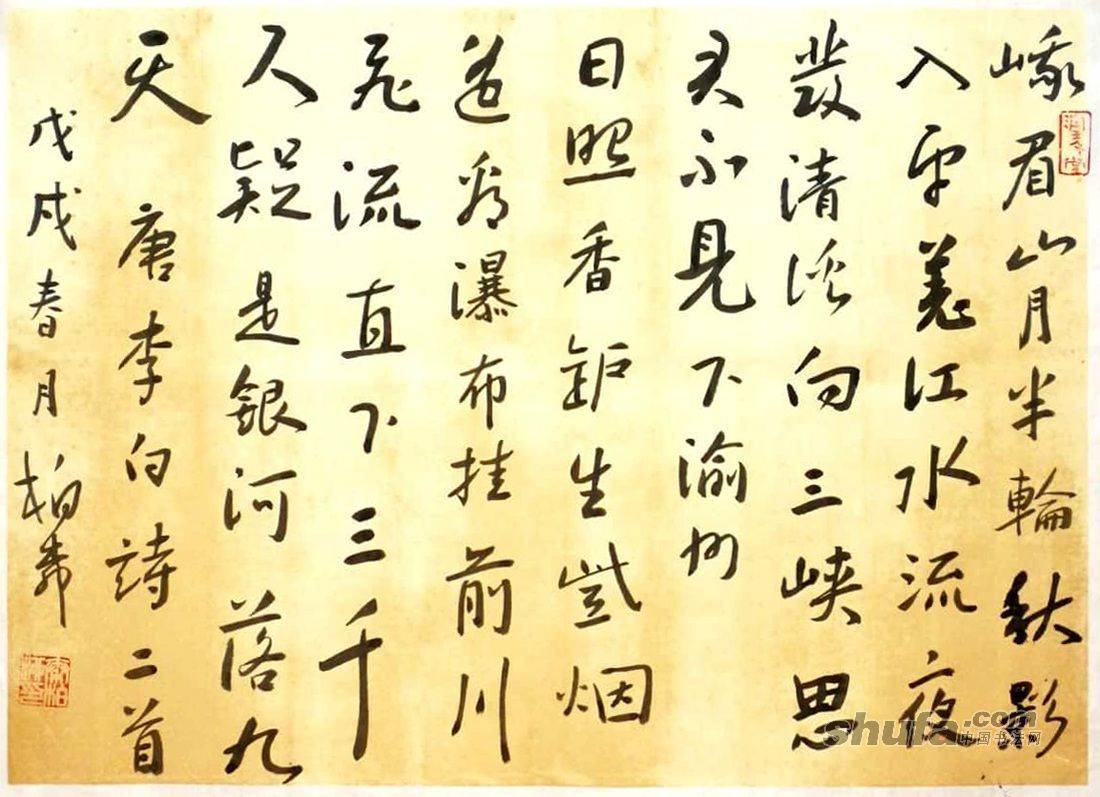 峨眉山月半輪秋影
入平羌江水流夜
發清溪向三峡思
君不見下渝州
日照香炉生紫烟
遥看瀑布挂前川
飛流直下三千
尺疑是銀河落九
天 唐李白詩二首
戊戌春月柏
shufa.com
中国书法网